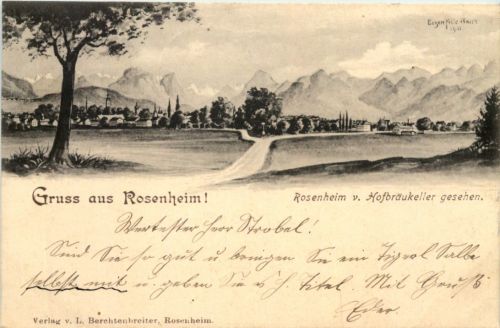 Gruss aus Rosenheim!
Rosenheim v. Hofbräukeller gesehen.
Wertester Herr Strobel!
Sind Sie so gut u bringen Sie ein Tigerl Salbe
selbst mit u. geben Sie s. h. Titel. Mit Gruß
Eder.
Verlag v. L. Berchtenbreiter, Rosenheim.